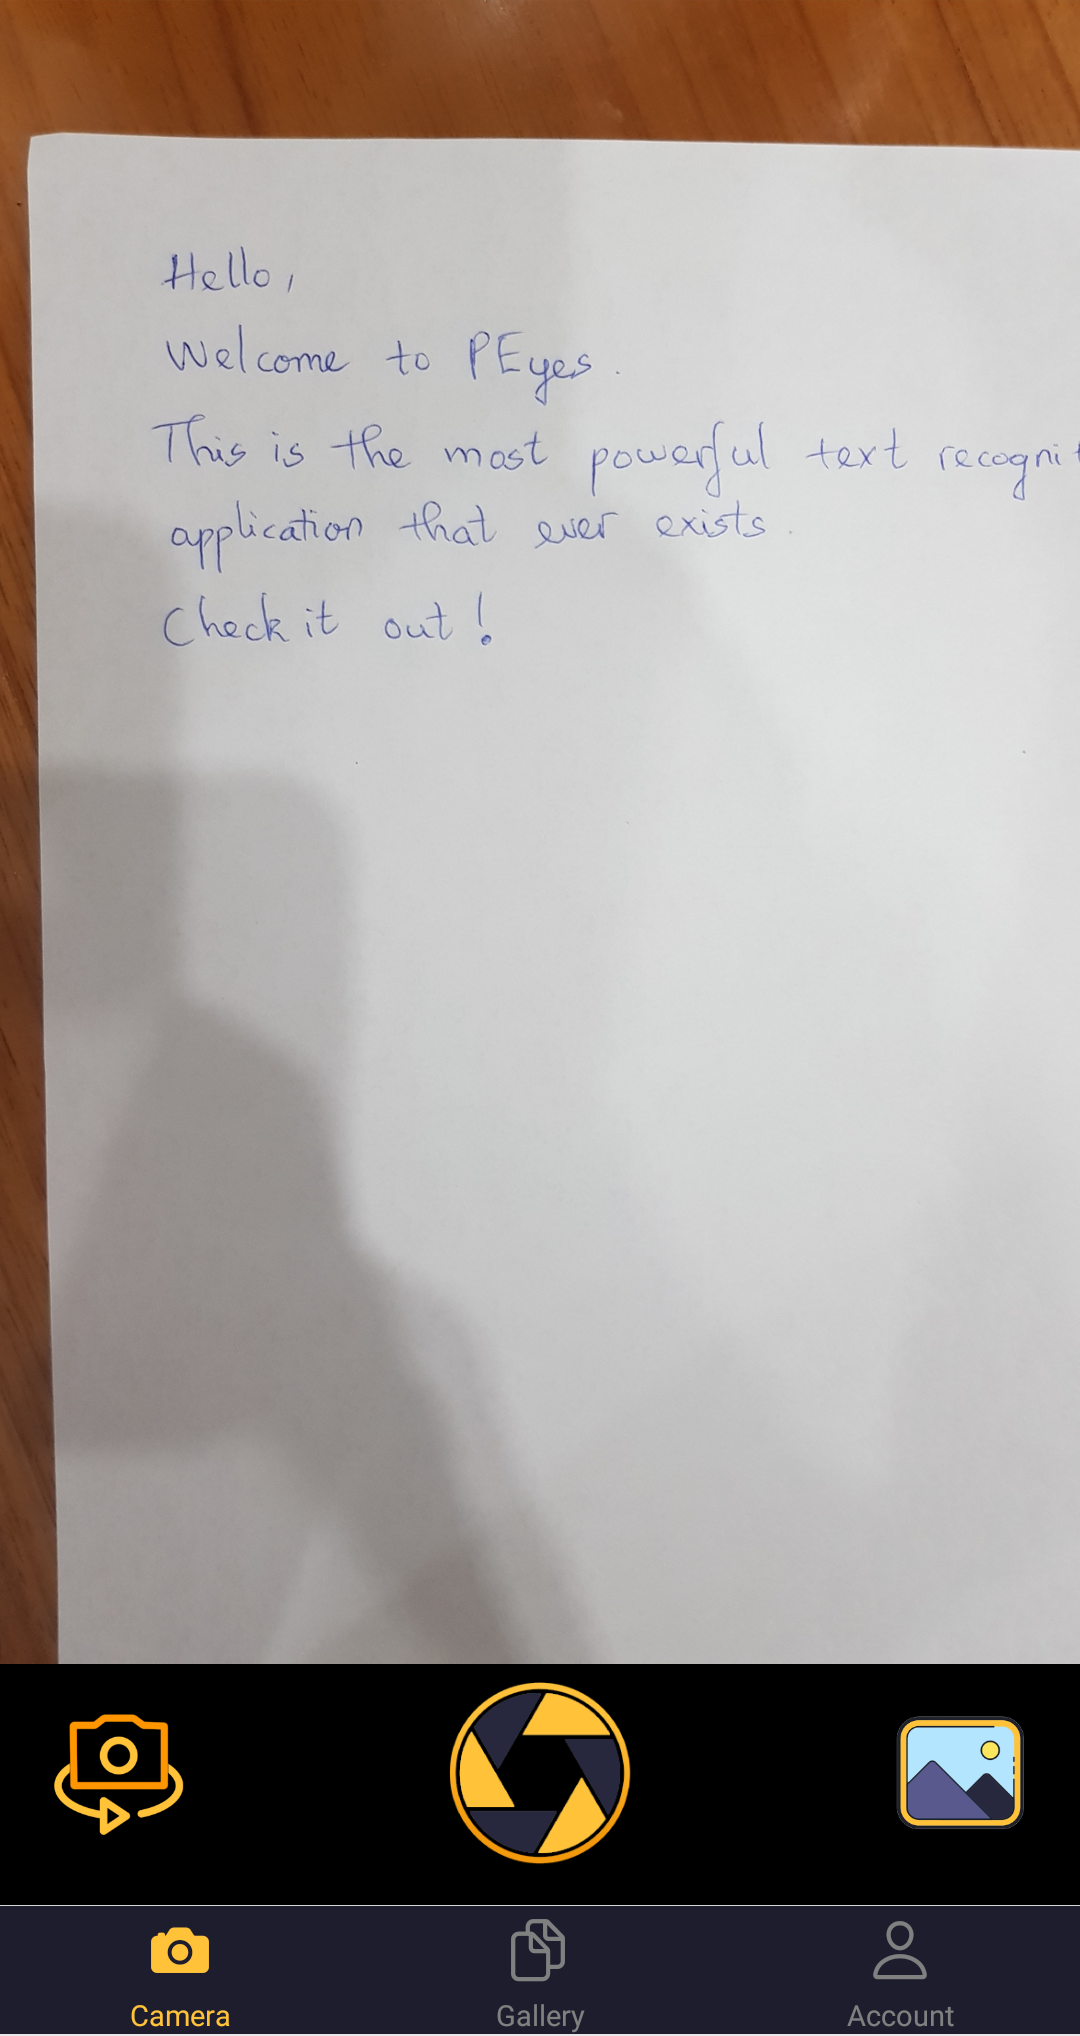 Hello,
Welcome to PEyes.
This is the most powerful text recognit
application that ever exists.
Check it out!
Camera
Gallery
Account